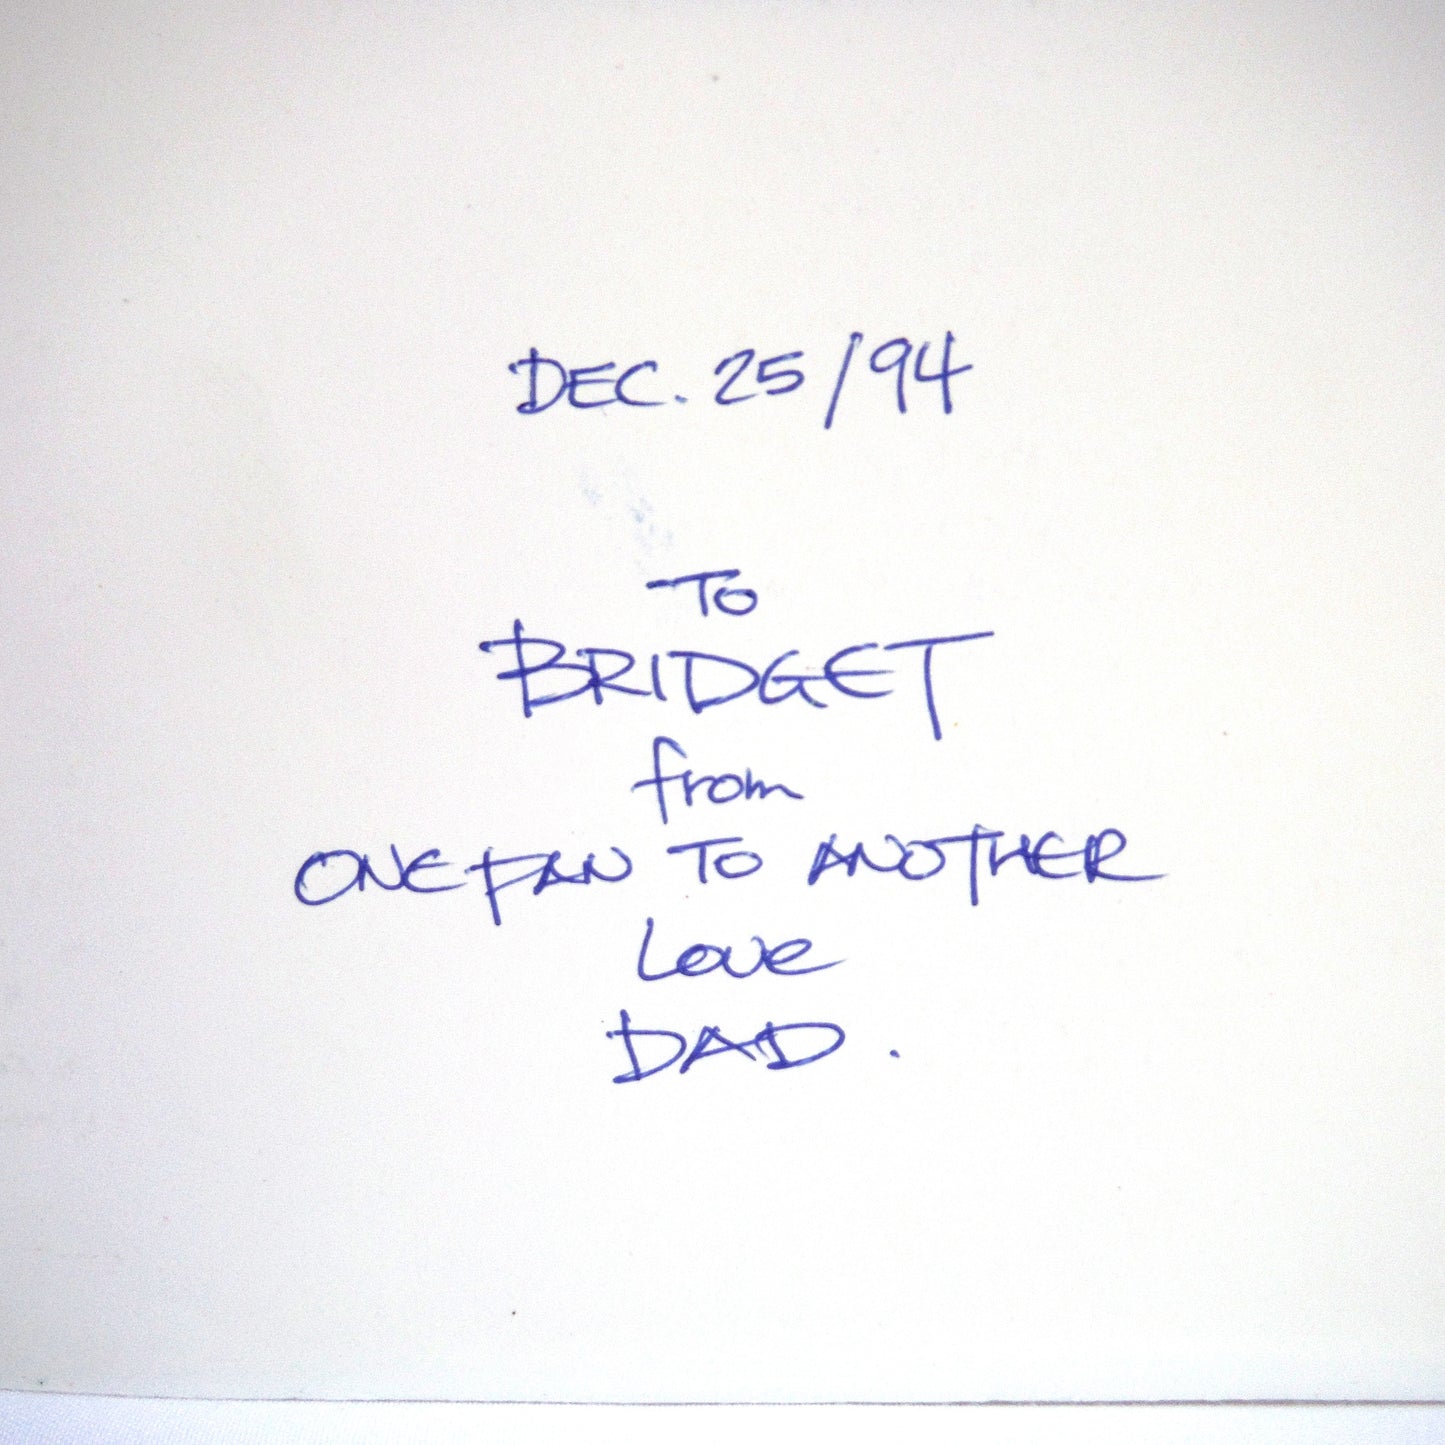 DEC. 25/94
TO
BRIDGET
from
ONE FAN TO ANOTHER
Love
DAD.